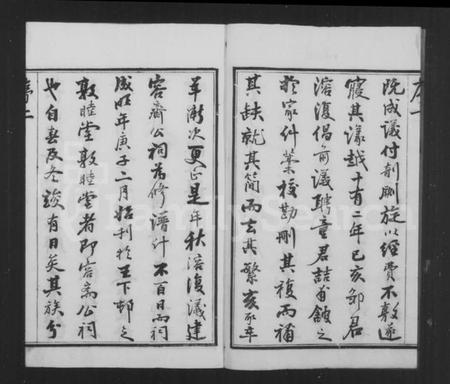 序一
既成議付剞劂旋以經費不敷遂
寢其議越十有二年己亥邹君
溶復倡前議聘童君詰甫館之
於家什葉校勘刪其複而補
其缺就其简而去其繁亥不年
羊漸次更正是年秋溶復議建
容齋公祠為修譜什不百日而祠
成明年庚子二月始刊於王下邨之
敦睦堂敦睦堂者即容齋公祠
也自春及冬竣有日矣其族分
序二
FamilySearch